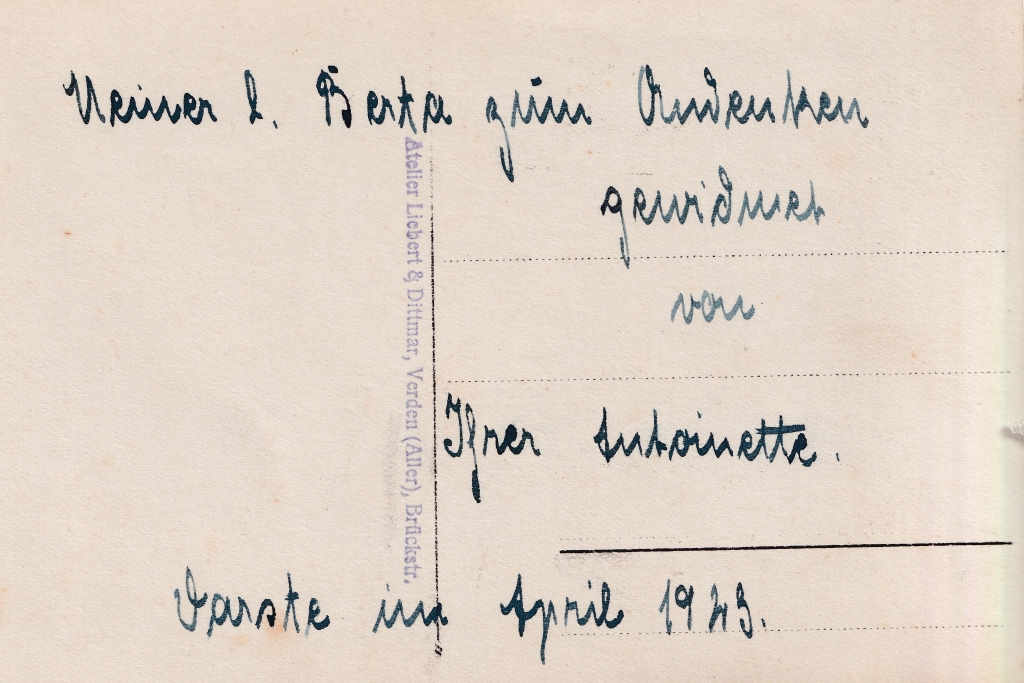 Meiner l. Berta zum Andenken
gewidmet
von
Ihrer Antoinette.
im April 1943.
Atelier Liebert & Dittmar, Verden (Aller), Brückstr.